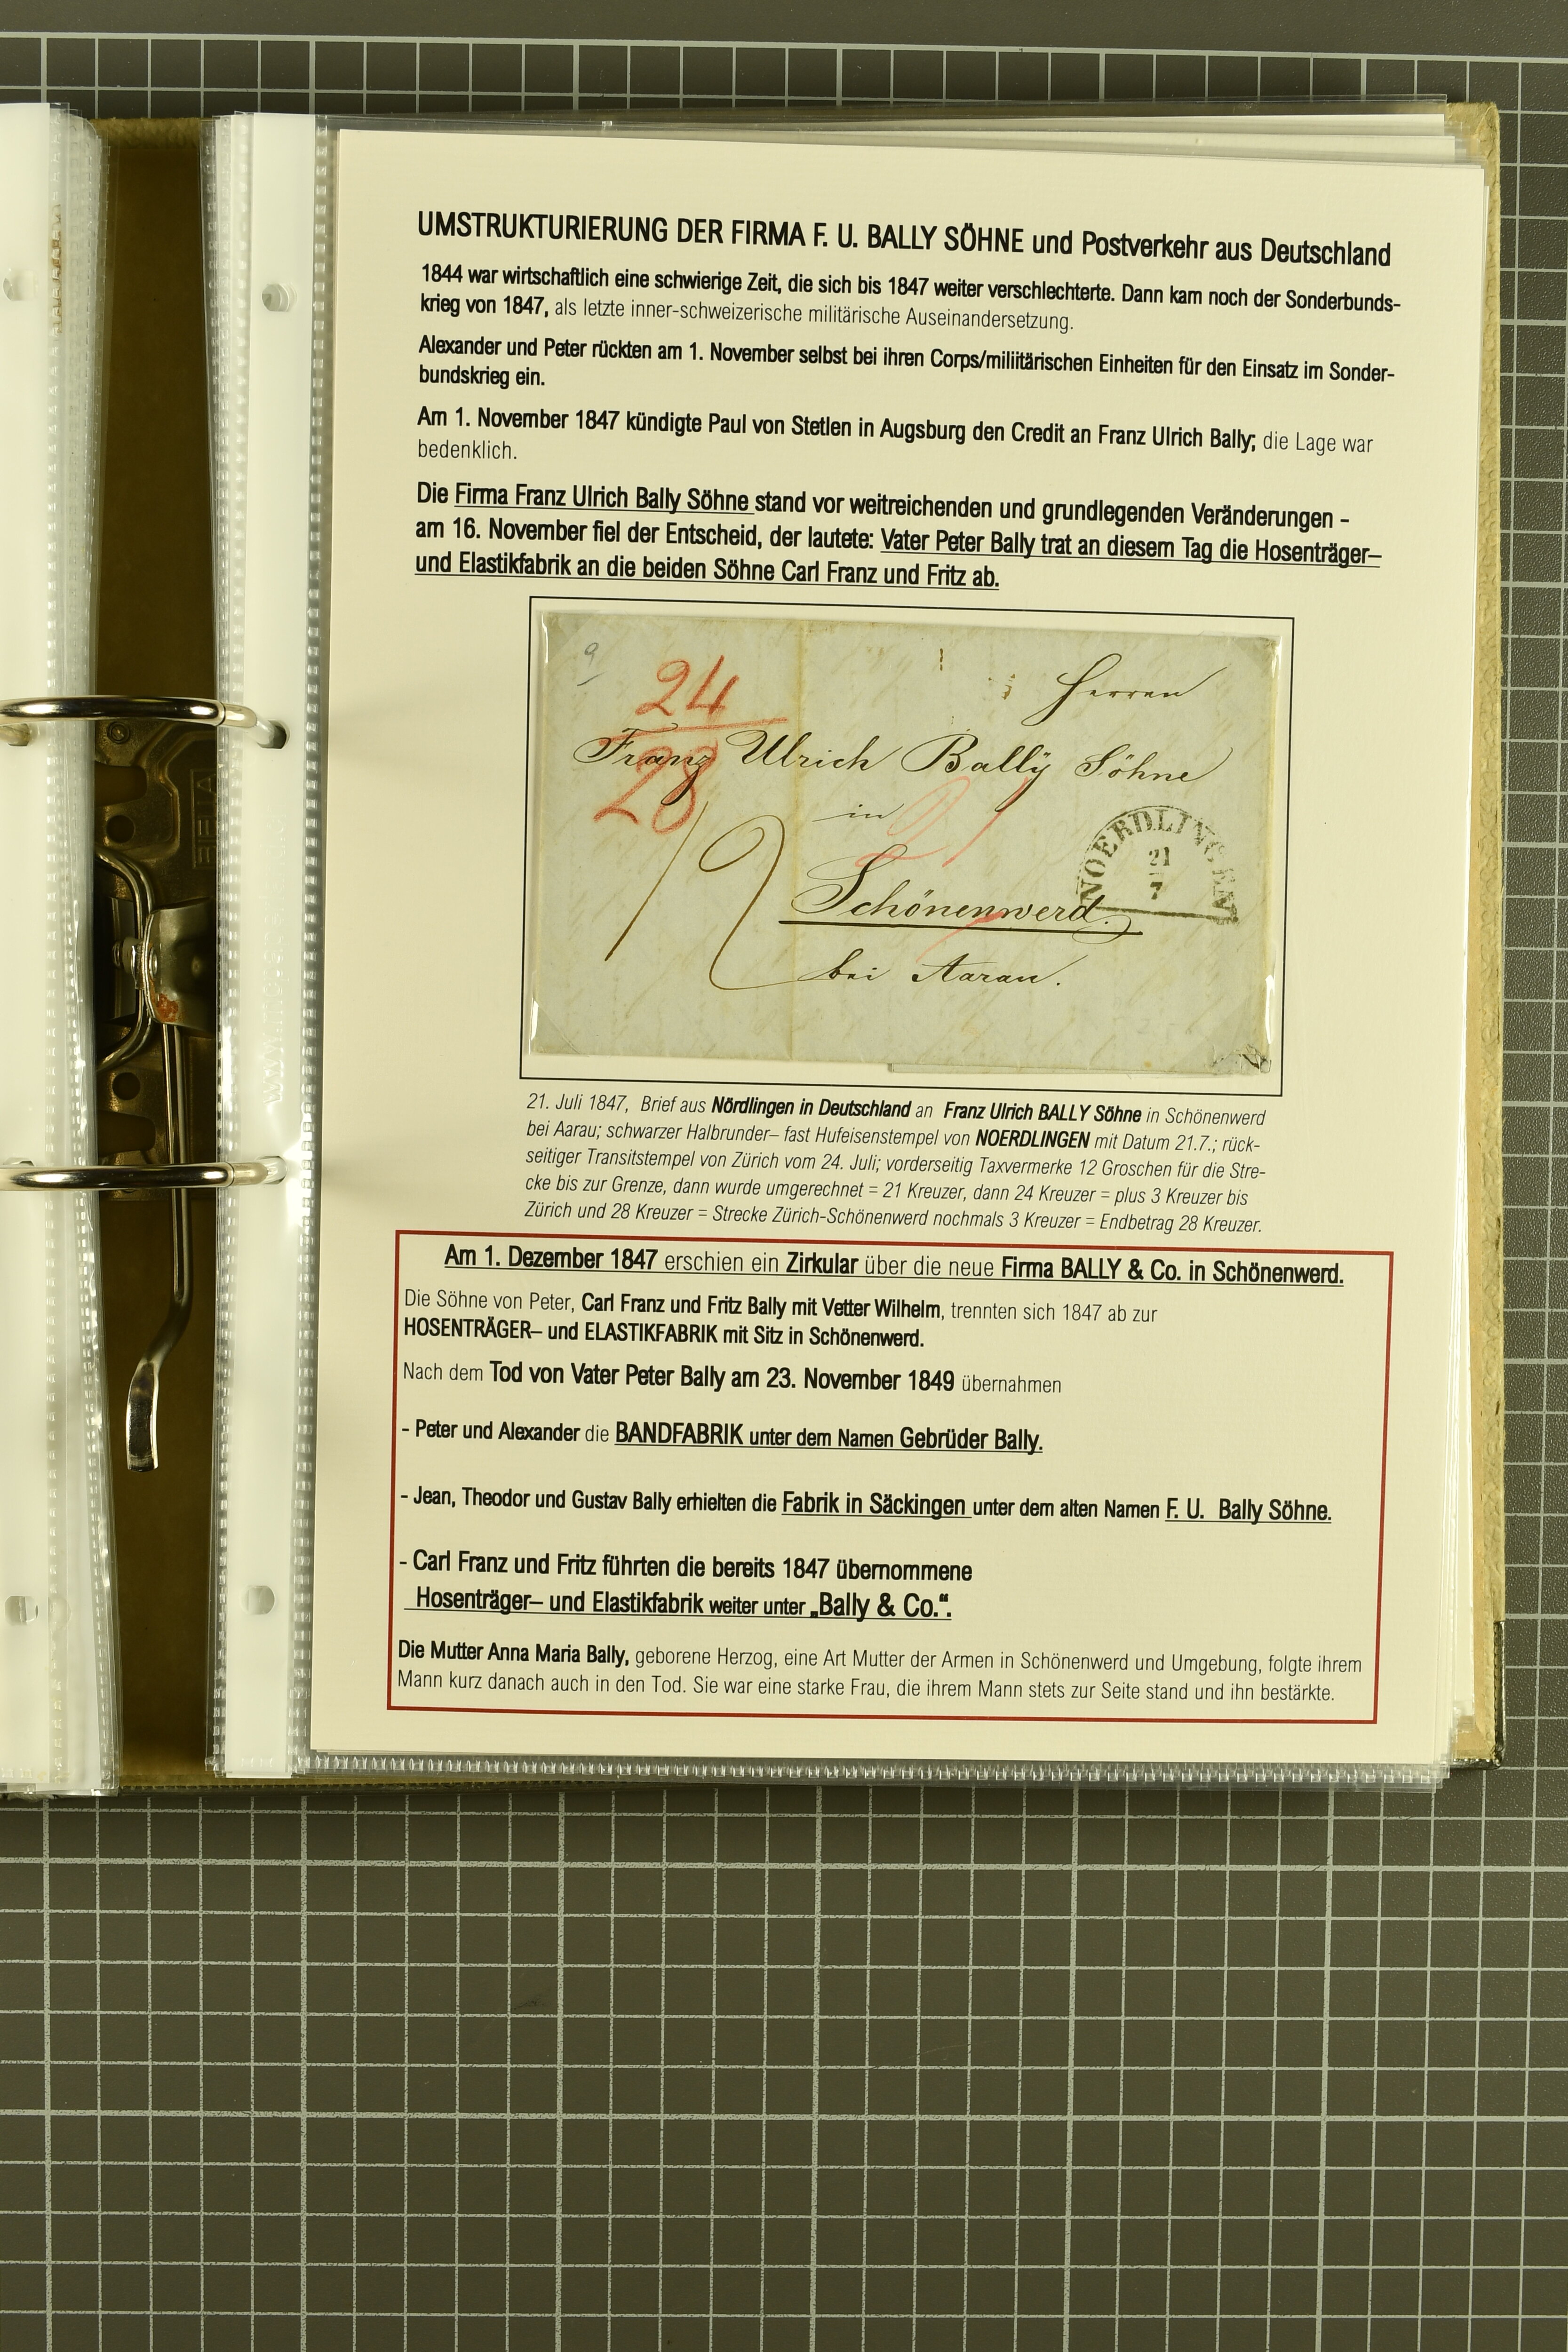 UMSTRUKTURIERUNG DER FIRMA F. U. BALLY SÖHNE und Postverkehr aus Deutschland
1844 war wirtschaftlich eine schwierige Zeit, die sich bis 1847 weiter verschlechterte. Dann kam noch der Sonderbunds-
krieg von 1847, als letzte inner-schweizerische militärische Auseinandersetzung.
Alexander und Peter rückten am 1. November selbst bei ihren Corps/miliitärischen Einheiten für den Einsatz im Sonder-
bundskrieg ein.
Am 1. November 1847 kündigte Paul von Stetlen in Augsburg den Credit an Franz Ulrich Bally; die Lage war
bedenklich.
Die Firma Franz Ulrich Bally Söhne stand vor weitreichenden und grundlegenden Veränderungen -
am 16. November fiel der Entscheid, der lautete: Vater Peter Bally trat an diesem Tag die Hosenträger–
und Elastikfabrik an die beiden Söhne Carl Franz und Fritz ab.
9
24
28
Herren
Franz Ulrich Bally Söhne
in
21
12
NOERDLINGEN
21
7
Schönenwerd.
bei Aarau.
21. Juli 1847, Brief aus Nördlingen in Deutschland an Franz Ulrich BALLY Söhne in Schönenwerd
bei Aarau; schwarzer Halbrunder– fast Hufeisenstempel von NOERDLINGEN mit Datum 21.7.; rück-
seitiger Transitstempel von Zürich vom 24. Juli; vorderseitig Taxvermerke 12 Groschen für die Stre-
cke bis zur Grenze, dann wurde umgerechnet = 21 Kreuzer, dann 24 Kreuzer = plus 3 Kreuzer bis
Zürich und 28 Kreuzer = Strecke Zürich-Schönenwerd nochmals 3 Kreuzer = Endbetrag 28 Kreuzer.
Am 1. Dezember 1847 erschien ein Zirkular über die neue Firma BALLY & Co. in Schönenwerd.
Die Söhne von Peter, Carl Franz und Fritz Bally mit Vetter Wilhelm, trennten sich 1847 ab zur
HOSENTRÄGER– und ELASTIKFABRIK mit Sitz in Schönenwerd.
Nach dem Tod von Vater Peter Bally am 23. November 1849 übernahmen
- Peter und Alexander die BANDFABRIK unter dem Namen Gebrüder Bally.
- Jean, Theodor und Gustav Bally erhielten die Fabrik in Säckingen unter dem alten Namen F. U. Bally Söhne.
- Carl Franz und Fritz führten die bereits 1847 übernommene
Hosenträger– und Elastikfabrik weiter unter „Bally & Co.“.
Die Mutter Anna Maria Bally, geborene Herzog, eine Art Mutter der Armen in Schönenwerd und Umgebung, folgte ihrem
Mann kurz danach auch in den Tod. Sie war eine starke Frau, die ihrem Mann stets zur Seite stand und ihn bestärkte.